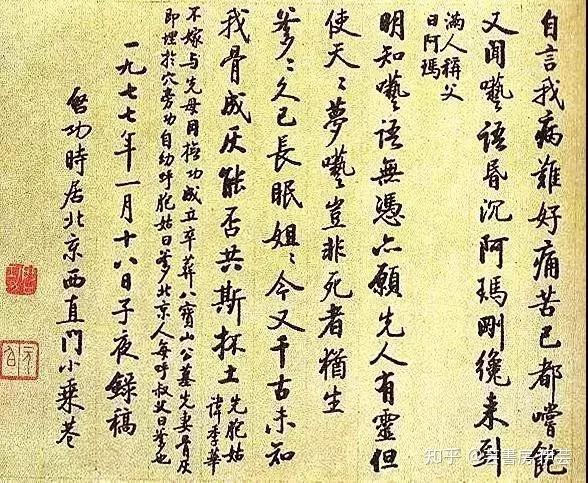 自言我病難好痛苦已都嚐飽
又聞囈語昏沉阿瑪剛纔來到
滿人稱父
曰阿瑪
明知囈語無憑亦願先人有靈但
使天〻夢囈豈非死者猶生
爹〻久已長眠姐〻今又千古未知
我骨成灰能否共斯抔土
先胞姑
諱季華
不嫁与先母同撫功成立卒葬八寶山公墓先妻骨灰
即埋於穴旁功自幼呼胞姑曰爹北京人每呼叔父曰爹也
一九七七年一月十八日子夜錄稿
啓功時居北京西直門小乘巷
知乎